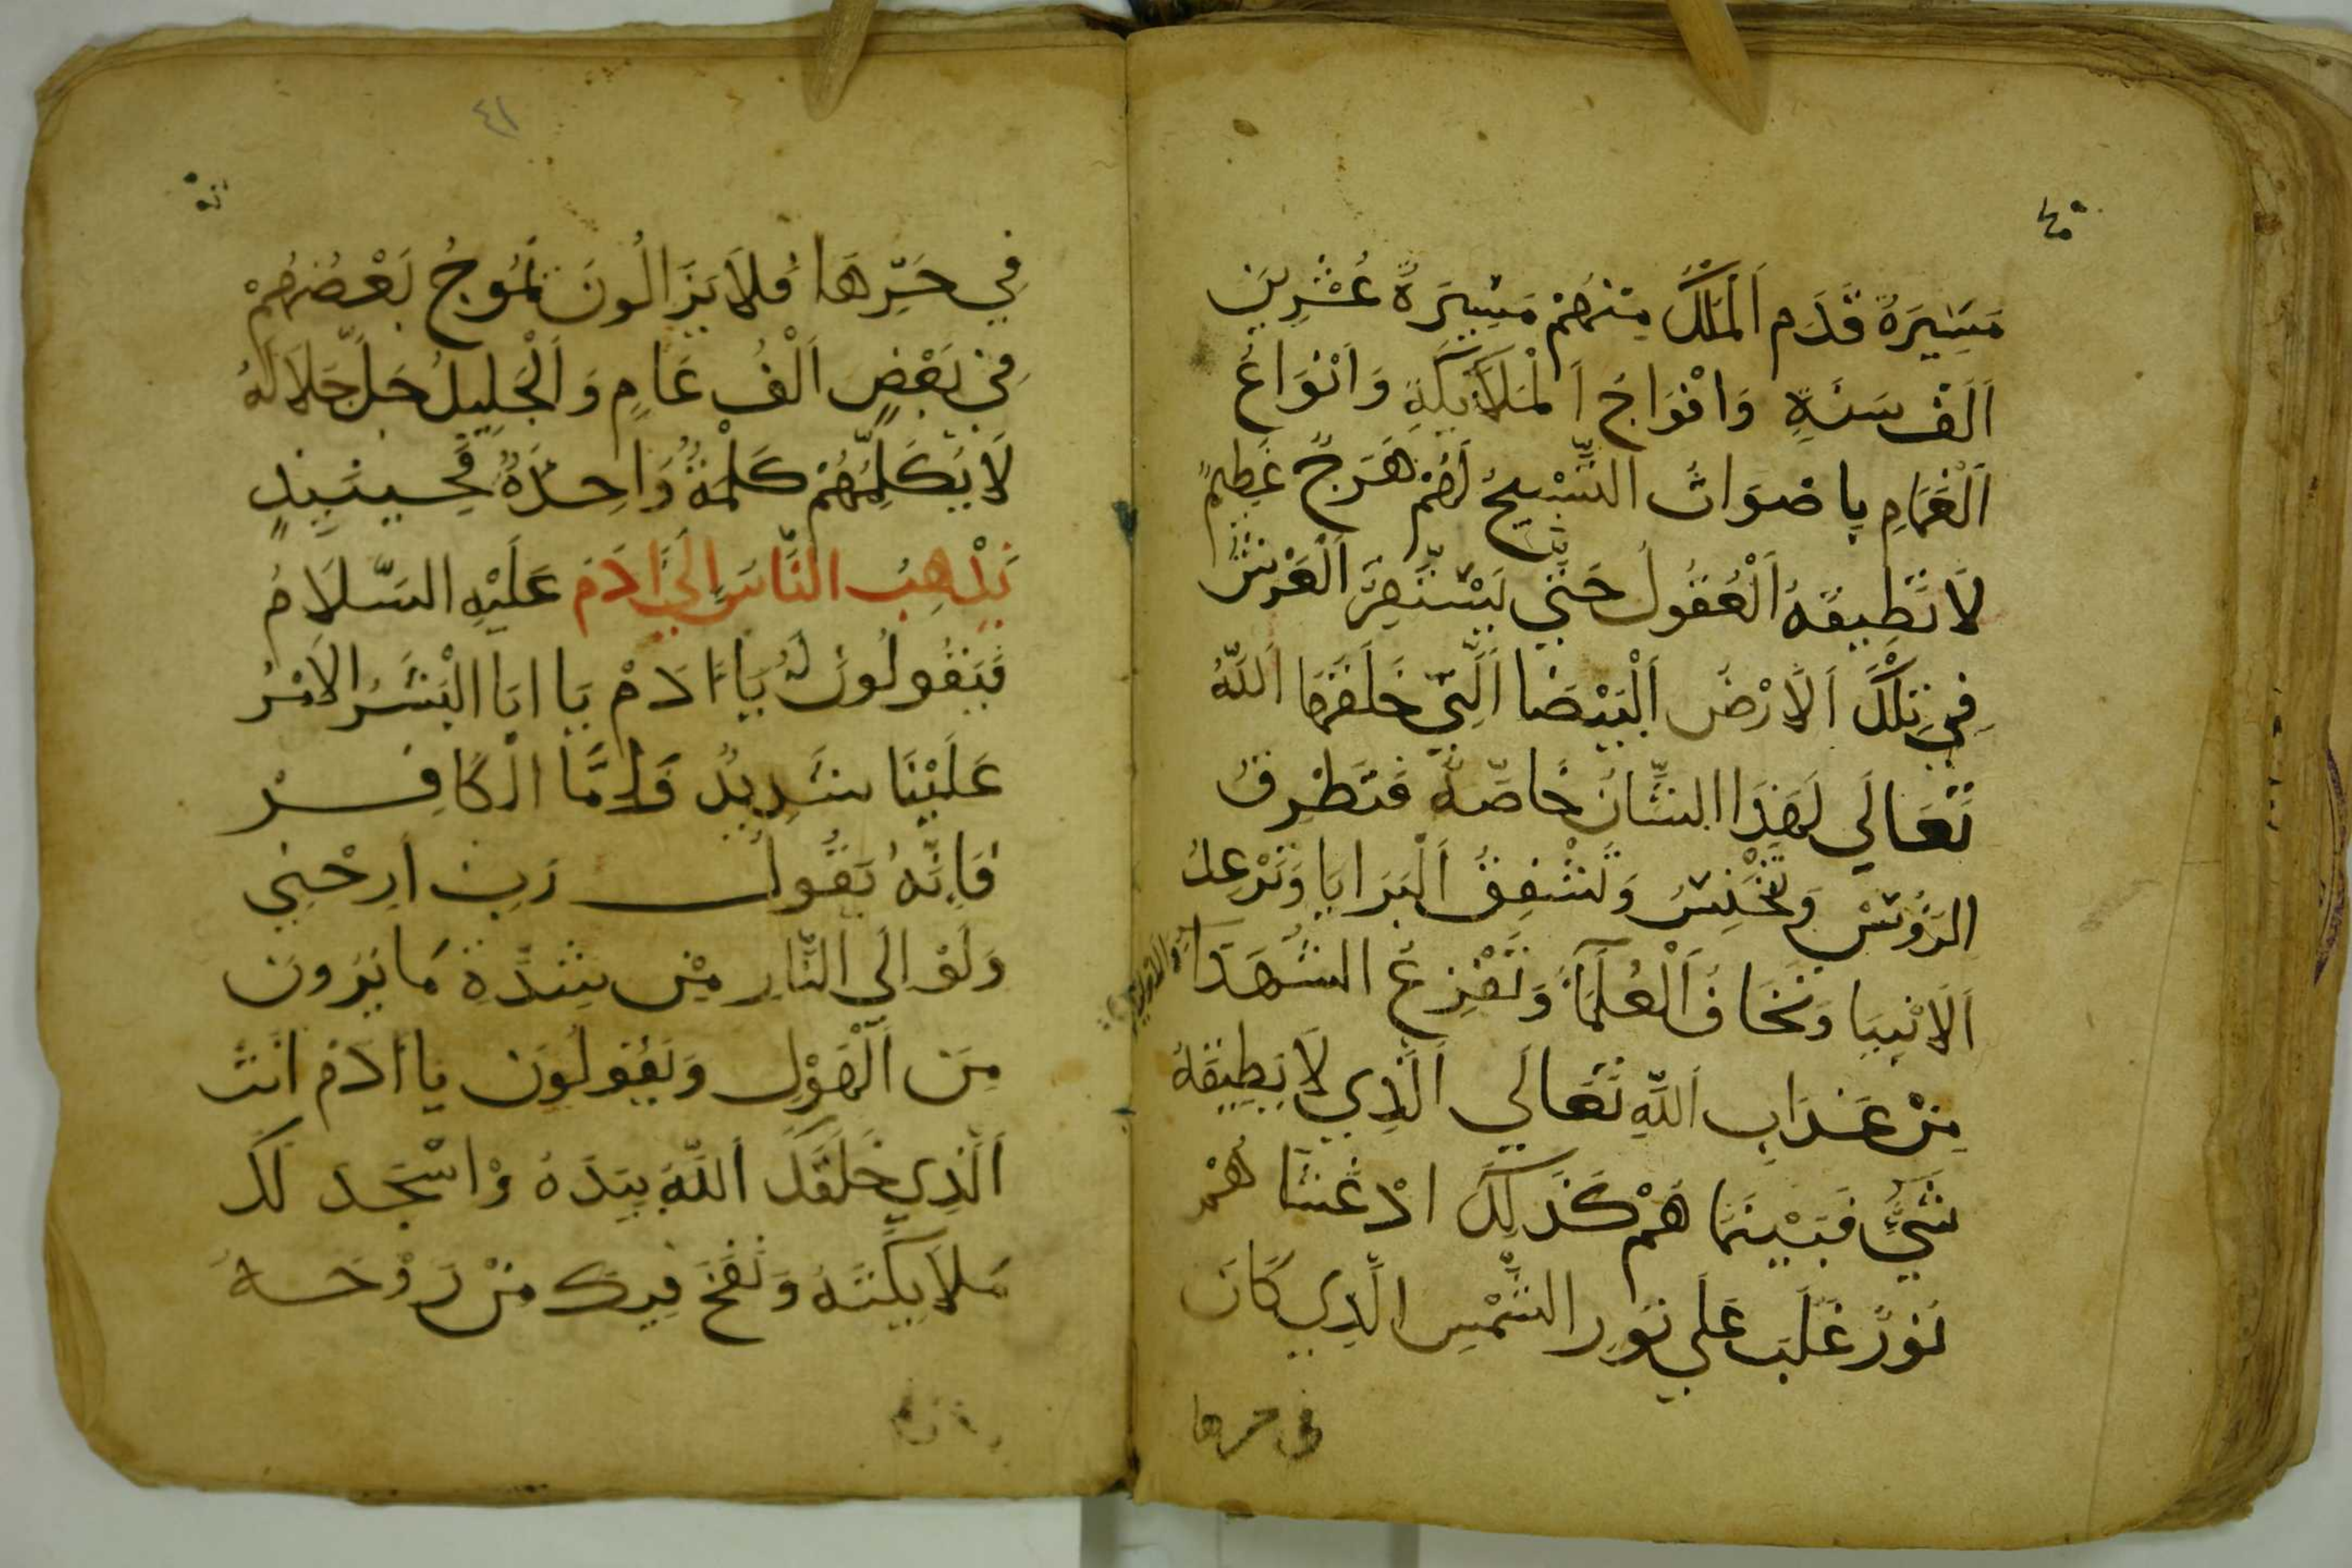 مَسِيرَةُ قَدَم اَلْمَلَكْ مِنْهُمْ مَسِيرَةُ عُشْرِينَ
اَلَفْ سَنَةٍ وَافْوَاجُ اَلْمَلَايِكَةِ وَاَنْوَاعُ
اَلْغَمَامِ بِاصْوَاتُ التَّسْبِيحُ لَهُمْ هَرَجٌ عَظِيمٌ
لَا تُطِيقَهُ اَلْعُقُولُ حَتَّي يَسْتَقِرَّ اَلْعَرْشْ
فِي تِلْكَ اَلَارْضُ اَلْبَيْضَا اَلَّتِي خَلَقَهَا اَللَّهُ
تَعَالَي لِهَذَا الشَّانُ خَاصَّةً فَتَطْرِقُ
الرَؤُسْ وَتَخْنِسُ وَتَشْفِقُ اَلْبَرَايَا وَتَرْعِدُ
اَلَانْبِيَا وَتَخَافُ اَلْعُلَمَآءُ وَتَفْزِعُ الشُّهَدَآ
مِنْ عَذَابِ اَللَّهِ تَعَالَي اَلَّذِي لَا يُطِيقَهُ
شَيُّ فَبَيْنَمَا هُمْ كَذَلِكَ اذْ غَشَا هُمْ
نُورٌ غَلَبَ عَلَي نُورِ الشَّمْسِ الَّذِي كَانَ
في حرها
٤١
فِي حَرِّهَا فَلَا يَزَالُونَ تَمُوجُ بَعْضُهُمْ
فِي بَعْضٍ اَلْفُ عَامٍ وَاَلْجَلِيلُ جَلَّ جَلَالَهُ
لَا يُكَلِّمُهُمْ كَلْمَةً وَاحِدَةً فَحِينَيِذٍ
يَذْهِبُ النَّاسُ اِلَي اَدَمَ عَلَيْهِ السَّلَامُ
فَيَقُولُونَ لَهُ يَا اَدَمْ يَا ابَا الْبَشَرُ الَامْرُ
عَلَيْنَا شَدِيدٌ وَاِمَّا الْكَافِرْ
فَاِنَّهُ يَقُولُ رَبِ اَرِحْنِي
وَلَوْ اِلَي النَّارِ مِنْ شِدَّةِ مَا يَرَونَ
مِنَ اَلْهَوْلِ وَيَقُولُونَ يَا اَدَمُ اَنْتَ
اَلَّذِي خَلَقَكَ اَللَّهُ بِيَدَهُ وَاسْجَدَ لَكَ
مَلَايِكَتَهُ وَنَفَخَ فِيكَ مِنْ رَوْحَهُ